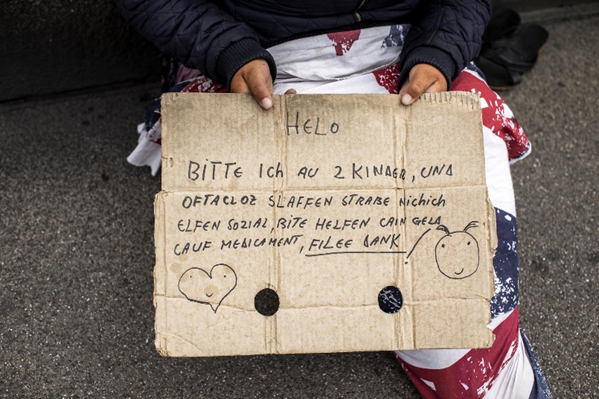 HELO
BITTE Ich AU 2 KINDER, UND
OFTACLOZ SLAFFEN STRAßE Nichich
ELFEN SOZIAL, BITE HELFEN CAIN GELD
CAUF MEDICAMENT, FILEE DANK!